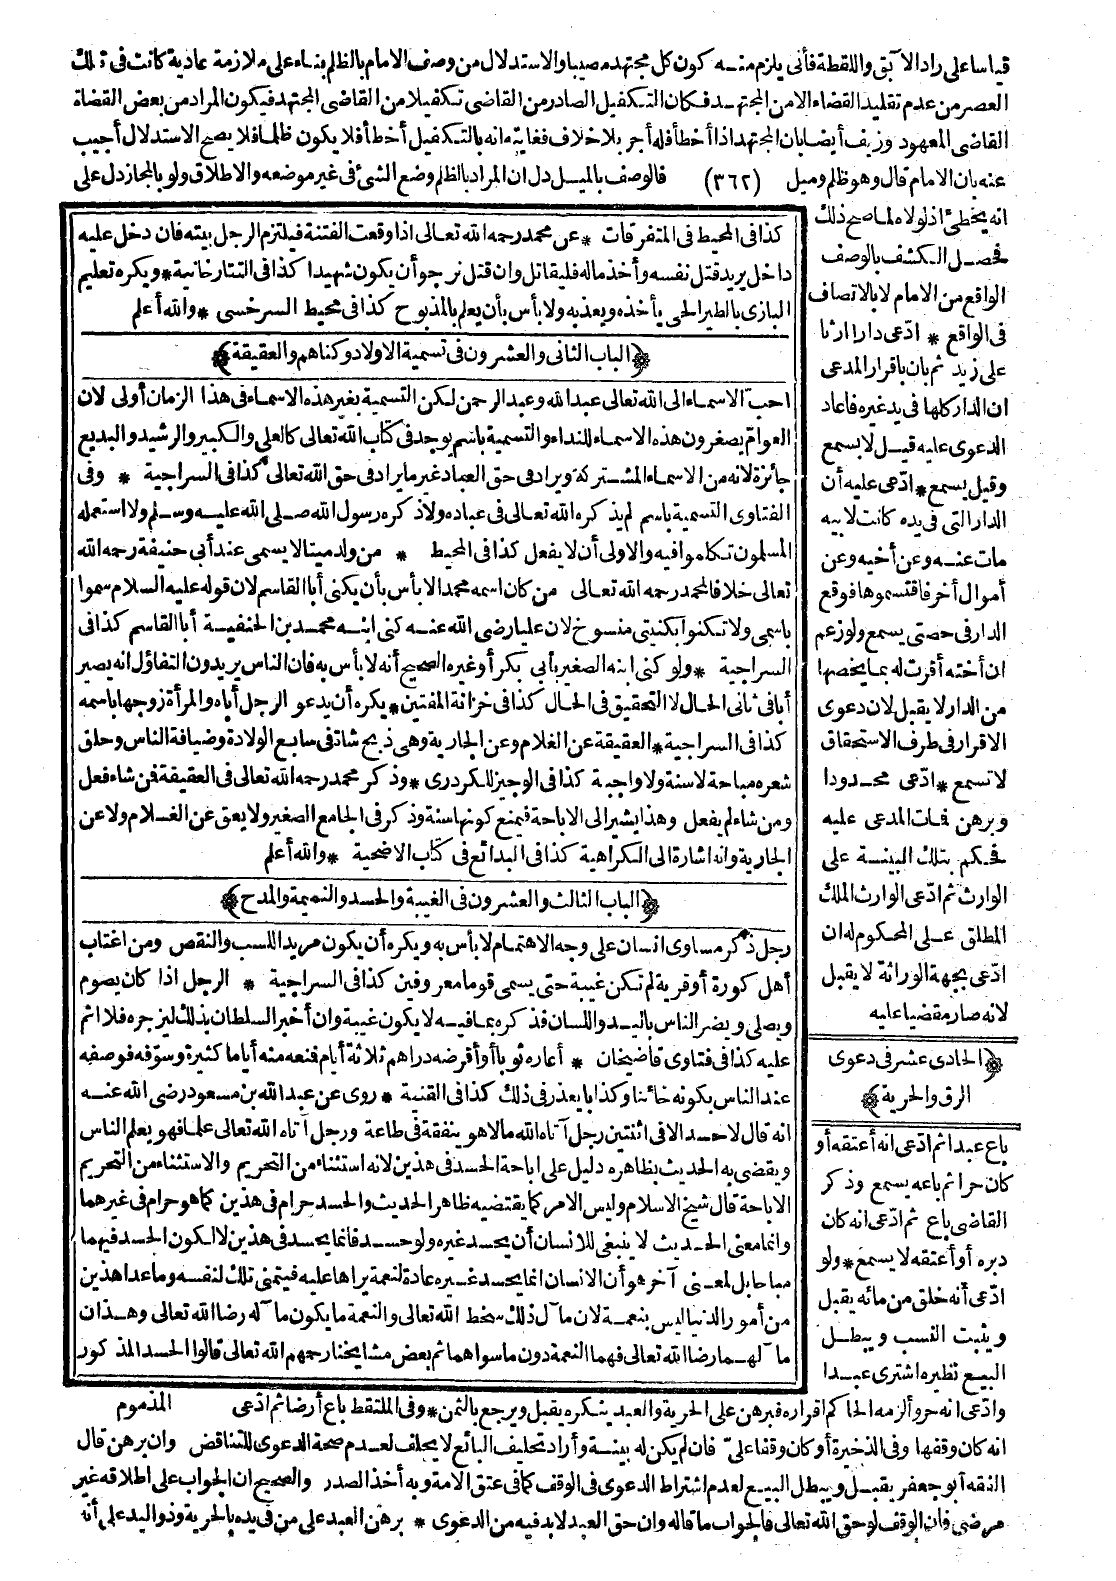 قياسا على راد الآبق واللقطة فأنى يلزم منه كون كل مجتهد مصيبا والاستدلال من وصف الامام بالظلم بناء على ملازمة عادية كانت فى ذلك
العصر من عدم تقليد القضاء الا من المجتهد فكان التكفيل الصادر من القاضى تكفيلا من القاضى المجتهد فيكون المراد من بعض القضاة
القاضى المعهود وزيف أيضا بان المجتهد اذا أخطأ فله أجر بلا خلاف فغايته انه بالتكفيل أخطأ فلا يكون ظلما فلا يصح الاستدلال أجيب
عنه بان الامام قال وهو ظلم وميل (٣٦٢) فالوصف بالميل دل ان المراد بالظلم وضع الشئ فى غير موضعه والاطلاق ولو بالمجاز دل على
انه يخطئ اذ لولاه لما صح ذلك
فحصل الكشف بالوصف
الواقع من الامام لا بالاتصاف
فى الواقع * ادّعى دارا ارثا
على زيد ثم بان باقرار المدعى
ان الدار كلها فى يد غيره فاعاد
الدعوى عليه قيل لا يسمع
وقيل يسمع * ادّعى عليه أن
الدار التى فى يده كانت لابيه
مات عنه وعن أخيه وعن
أموال أخر فاقتسموها فوقع
الدار فى حصتى يسمع ولو زعم
ان أخته أقرت له بما يخصها
من الدار لا يقبل لان دعوى
الاقرار فى طرف الاستحقاق
لا تسمع * ادّعى محدودا
وبرهن فمات المدعى عليه
فحكم بتلك البينة على
الوارث ثم ادّعى الوارث الملك
المطلق على المحكوم له ان
ادّعى بجهة الوراثة لا يقبل
لانه صار مقضيا عليه
﴿الحادى عشر فى دعوى
الرق والحرية﴾
باع عبدا ثم ادّعى انه أعتقه أو
كان حرا ثم باعه يسمع وذكر
القاضى باع ثم ادّعى انه كان
دبره أو أعتقه لا يسمع * ولو
ادّعى أنه خلق من مائه يقبل
ويثبت النسب ويبطل
البيع نظيره اشترى عبدا
كذا فى المحيط فى المتفرقات * عن محمد رحمه الله تعالى اذا وقعت الفتنة فيلتزم الرجل بيته فان دخل عليه
داخل يريد قتل نفسه وأخذ ماله فليقاتل وان قتل نرجو أن يكون شهيدا كذا فى التتارخانية * ويكره تعليم
البازى بالطير الحى يأخذه ويعذبه ولا بأس بأن يعلم بالمذبوح كذا فى محيط السرخسى * والله أعلم
﴿الباب الثانى والعشرون فى تسمية الاولاد وكناهم والعقيقة﴾
احبّ الاسماء الى الله تعالى عبد الله وعبد الرحمن لكن التسمية بغير هذه الاسماء فى هذا الزمان أولى لان
العوامّ يصغرون هذه الاسماء للنداء والتسمية باسم يوجد فى كتاب الله تعالى كالعلى والكبير والرشيد والبديع
جائزة لانه من الاسماء المشتركة ويراد فى حق العباد غير ما يراد فى حق الله تعالى كذا فى السراجية * وفى
الفتاوى التسمية باسم لم يذكره الله تعالى فى عباده ولا ذكره رسول الله صلى الله عليه وسلم ولا استعمله
المسلمون تكلموا فيه والاولى أن لا يفعل كذا فى المحيط * من ولد ميتا لا يسمى عند أبى حنيفة رحمه الله
تعالى خلافا لمحمد رحمه الله تعالى من كان اسمه محمد الا بأس بأن يكنى أبا القاسم لان قوله عليه السلام سموا
باسمى ولا تكنوا بكنيتى منسوخ لان عليا رضى الله عنه كنى ابنه محمد بن الحنفية أبا القاسم كذا فى
السراجية * ولو كنى ابنه الصغير بأبى بكر أو غيره الصحيح أنه لا بأس به فان الناس يريدون التفاؤل انه يصير
أبا فى ثانى الحال لا التحقيق فى الحال كذا فى خزانة المفتين * يكره أن يدعو الرجل أباه والمرأة زوجها باسمه
كذا فى السراجية * العقيقة عن الغلام وعن الجارية وهى ذبح شاة فى سابع الولادة وضيافة الناس وحلق
شعره مباحة لا سنة ولا واجبة كذا فى الوجيز للكردرى * وذكر محمد رحمه الله تعالى فى العقيقة فمن شاء فعل
ومن شاء لم يفعل وهذا يشير الى الاباحة فيمنع كونها سنة وذكر فى الجامع الصغير ولا يعق عن الغلام ولا عن
الجارية وانه اشارة الى الكراهية كذا فى البدائع فى كتاب الاضحية * والله أعلم
﴿الباب الثالث والعشرون فى الغيبة والحسد والنميمة والمدح﴾
رجل ذكر مساوى انسان على وجه الاهتمام لا بأس به ويكره أن يكون مريد اللسب والنقص ومن اغتاب
أهل كورة أو قرية لم تكن غيبة حتى يسمى قوما معروفين كذا فى السراجية * الرجل اذا كان يصوم
ويصلى ويضر الناس باليد واللسان فذكره بما فيه لا يكون غيبة وان أخبر السلطان بذلك ليزجره فلا اثم
عليه كذا فى فتاوى قاضيخان * أعاره ثوبا أو أقرضه دراهم ثلاثة أيام فمنعه منه أياما كثيرة وسوّفه فوصفه
عند الناس بكونه خائنا وكذابا يعذر فى ذلك كذا فى القنية * روى عن عبد الله بن مسعود رضى الله عنه
انه قال لا حسد الا فى اثنتين رجل آتاه الله مالا هو ينفقه فى طاعة ورجل آتاه الله تعالى علما فهو يعلم الناس
ويقضى به الحديث بظاهره دليل على اباحة الحسد فى هذين لانه استثناء من التحريم والاستثناء من التحريم
الاباحة قال شيخ الاسلام وليس الامر كما يقتضيه ظاهر الحديث والحسد حرام فى هذين كما هو حرام فى غيرهما
وانما معنى الحديث لا ينبغى للانسان أن يحسد غيره ولو حسد فانما يحسد فى هذين لا لكون الحسد فيهما
مباحا بل لمعنى آخر هو أن الانسان انما يحسد غيره عادة لنعمة يراها عليه فيتمنى تلك لنفسه وما عدا هذين
من أمور الدنيا ليس بنعمة لان مآل ذلك سخط الله تعالى والنعمة ما يكون مآله رضا الله تعالى وهذان
مآلهما رضا الله تعالى فهما النعمة دون ما سواهما ثم بعض مشايخنا رحمهم الله تعالى قالوا الحسد المذكور
المذموم
وادّعى انه حر وألزمه الحاكم اقراره فبرهن على الحرية والعبد ينكره يقبل ويرجع بالثمن * وفى الملتقط باع أرضا ثم ادّعى
انه كان وقفها وفى الذخيرة أو كان وقفا علىّ فان لم يكن له بينة وأراد تحليف البائع لا يحلف لعدم صحة الدعوى للتناقض وان برهن قال
الفقه أبو جعفر يقبل ويبطل البيع لعدم اشتراط الدعوى فى الوقف كما فى عتق الامة وبه أخذ الصدر والصحيح ان الجواب على اطلاقه غير
مرضى فان الوقف لو حق الله تعالى فالجواب ما قاله وان حق العبد لا بد فيه من الدعوى * برهن العبد على من فى يده بالحرية وذو اليد على أنه